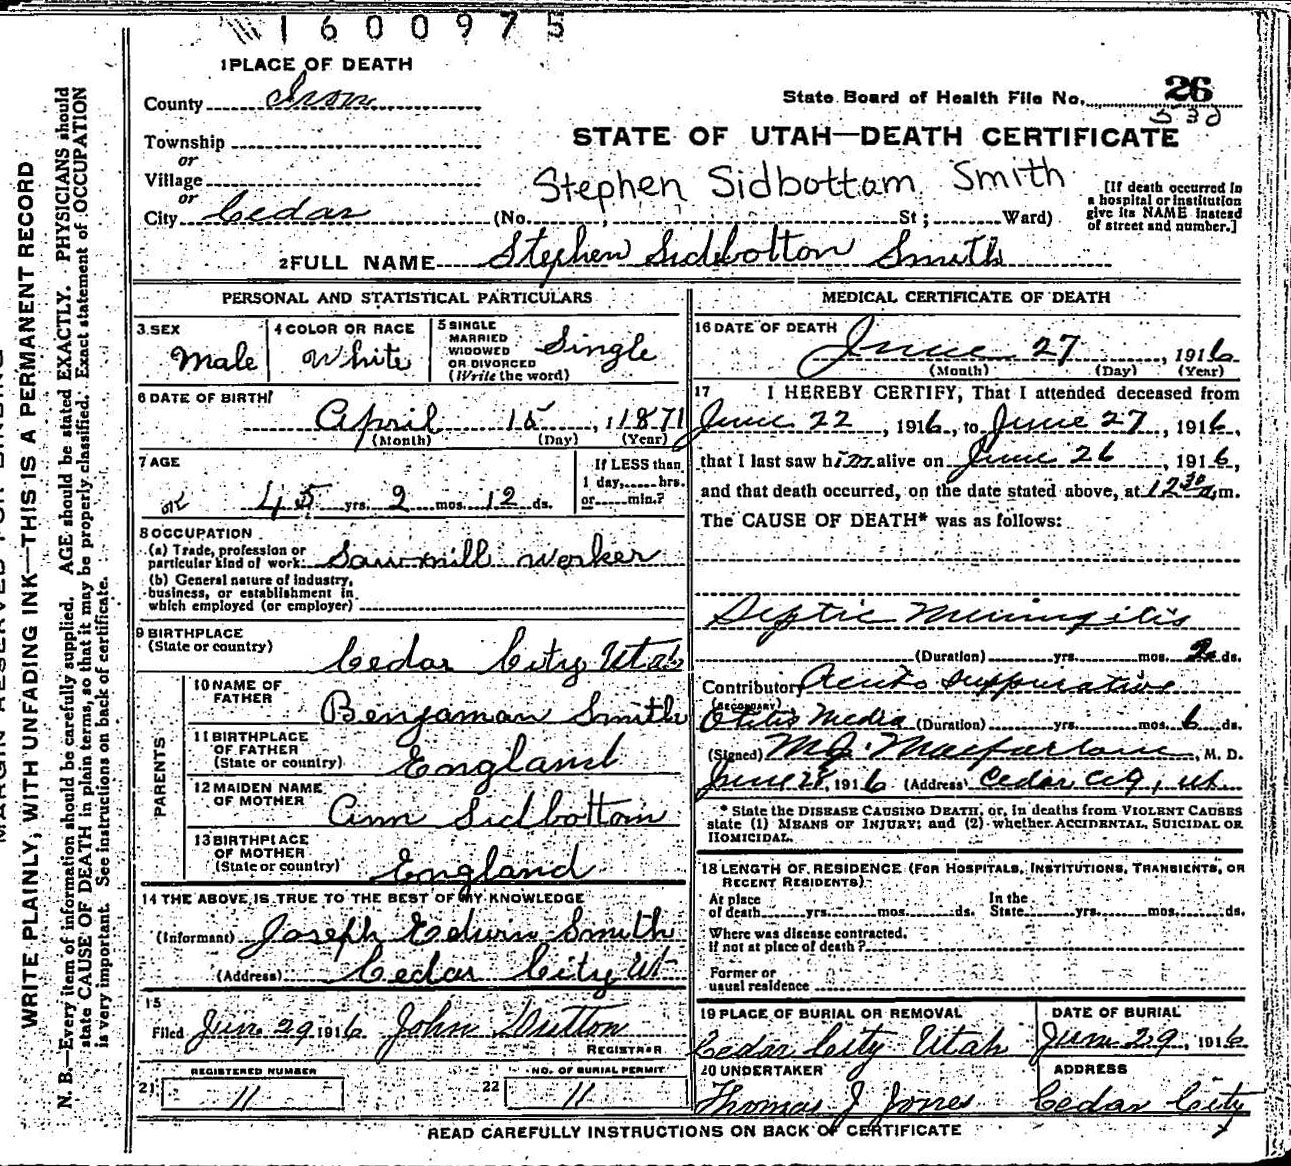 1600975
1 PLACE OF DEATH
County Iron
State Board of Health File No. 26
530
Township
STATE OF UTAH—DEATH CERTIFICATE
or
Village
or
Stephen Sidbottam Smith
City Cedar (No. St; Ward)
[If death occurred in
a hospital or institution
give its NAME instead
of street and number.]
2 FULL NAME Stephen Sidbolton Smith
PERSONAL AND STATISTICAL PARTICULARS
3. SEX
Male
4 COLOR OR RACE
White
5 SINGLE
MARRIED
WIDOWED
OR DIVORCED
(Write the word)
Single
6 DATE OF BIRTH
April 15, 1871
(Month) (Day) (Year)
7 AGE
45 yrs. 2 mos. 12 ds.
If LESS than
1 day, hrs.
or min.?
8 OCCUPATION
(a) Trade, profession or
particular kind of work: Sawmill worker
(b) General nature of industry,
business, or establishment in
which employed (or employer)
9 BIRTHPLACE
(State or country)
Cedar City Utah
PARENTS
10 NAME OF
FATHER
Bengaman Smith
11 BIRTHPLACE
OF FATHER
(State or country)
England
12 MAIDEN NAME
OF MOTHER
Ann Sidbottom
13 BIRTHPLACE
OF MOTHER
(State or country)
England
14 THE ABOVE IS TRUE TO THE BEST OF MY KNOWLEDGE
(Informant) Joseph Edwin Smith
(Address) Cedar City Ut
15
Filed Jun. 29 1916 John Dutton
REGISTRAR
21 REGISTERED NUMBER
11
22 NO. OF BURIAL PERMIT
11
MEDICAL CERTIFICATE OF DEATH
16 DATE OF DEATH
June 27, 1916
(Month) (Day) (Year)
17 I HEREBY CERTIFY, That I attended deceased from
June 22, 1916, to June 27, 1916,
that I last saw him alive on June 26, 1916,
and that death occurred, on the date stated above, at 12 30 a.m.
The CAUSE OF DEATH* was as follows:
Septic Miningitis
(Duration) yrs. mos. 2 ds.
Contributory Acute suppurative
(SECONDARY)
Otitis Media (Duration) yrs. mos. 6 ds.
(Signed) M.J. Macfarlane, M. D.
June 28, 1916 (Address) Cedar City, Ut.
* State the DISEASE CAUSING DEATH, or, in deaths from VIOLENT CAUSES
state (1) MEANS OF INJURY; and (2) whether ACCIDENTAL, SUICIDAL OR
HOMICIDAL.
18 LENGTH OF RESIDENCE (FOR HOSPITALS, INSTITUTIONS, TRANSIENTS, OR
RECENT RESIDENTS)
At place
of death yrs. mos. ds.
In the
State yrs. mos. ds.
Where was disease contracted.
if not at place of death?
Former or
usual residence
19 PLACE OF BURIAL OR REMOVAL
Cedar City Utah
DATE OF BURIAL
Jun 29, 1916
20 UNDERTAKER
Thomas J Jones
ADDRESS
Cedar City
READ CAREFULLY INSTRUCTIONS ON BACK OF CERTIFICATE
WRITE PLAINLY, WITH UNFADING INK—THIS IS A PERMANENT RECORD
N. B.—Every item of information should be carefully supplied. AGE should be stated EXACTLY. PHYSICIANS should
state CAUSE OF DEATH in plain terms, so that it may be properly classified. Exact statement of OCCUPATION
is very important. See instructions on back of certificate.